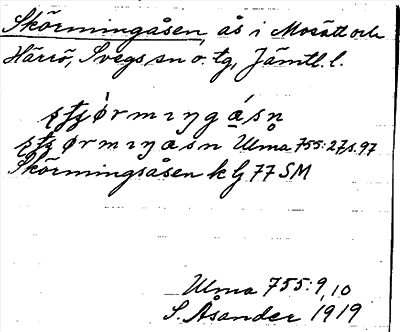 Skörmingåsen, ås i Mosätt och
Härrö, Svegs sn o. tg, Jämtl. l.
Ulma 755:27, s. 97
Skörmingsåsen k bj 77 SM
Ulma 755:9, 10
S. Åsander 1919